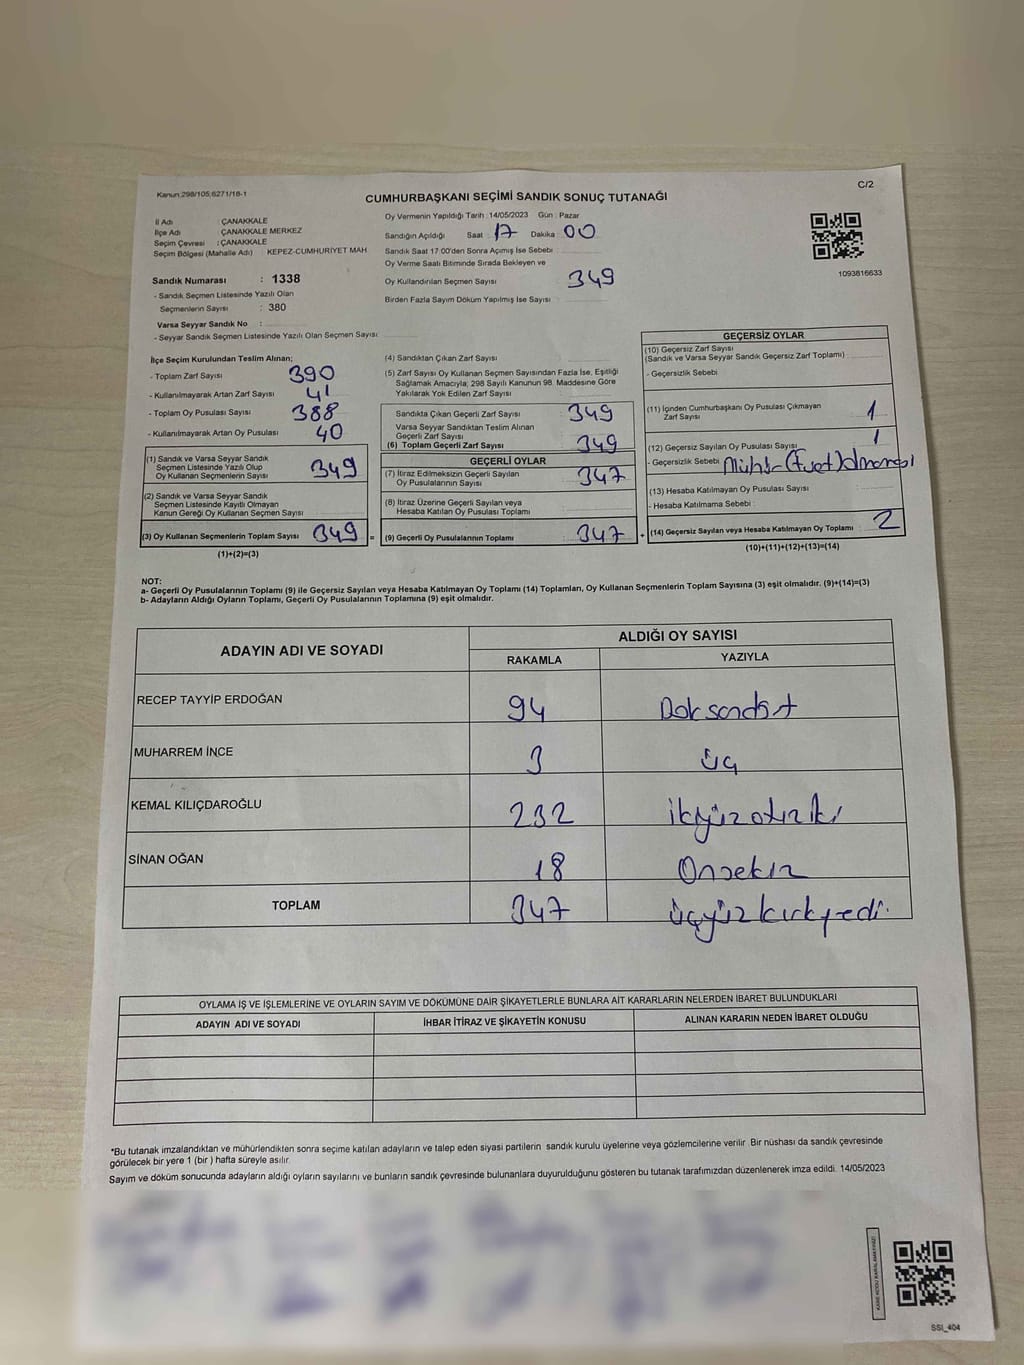 Kanun:298/105;6271/16-1
C/2
CUMHURBAŞKANI SEÇİMİ SANDIK SONUÇ TUTANAĞI
İl Adı : ÇANAKKALE
İlçe Adı : ÇANAKKALE MERKEZ
Seçim Çevresi : ÇANAKKALE
Seçim Bölgesi (Mahalle Adı) KEPEZ-CUMHURİYET MAH
Sandık Numarası : 1338
- Sandık Seçmen Listesinde Yazılı Olan
Seçmenlerin Sayısı : 380
Varsa Seyyar Sandık No :
- Seyyar Sandık Seçmen Listesinde Yazılı Olan Seçmen Sayısı :
Oy Vermenin Yapıldığı Tarih : 14/05/2023 Gün : Pazar
Sandığın Açıldığı Saat : 17 Dakika : 00
Sandık Saat 17.00'den Sonra Açımış İse Sebebi :
Oy Verme Saati Bitiminde Sırada Bekleyen ve
Oy Kullandırılan Seçmen Sayısı : 349
Birden Fazla Sayım Döküm Yapılmış İse Sayısı :
1093816633
İlçe Seçim Kurulundan Teslim Alınan;
- Toplam Zarf Sayısı : 390
- Kullanılmayarak Artan Zarf Sayısı : 41
- Toplam Oy Pusulası Sayısı : 388
- Kullanılmayarak Artan Oy Pusulası : 40
(1) Sandık ve Varsa Seyyar Sandık
Seçmen Listesinde Yazılı Olup
Oy Kullanan Seçmenlerin Sayısı : 349
(2) Sandık ve Varsa Seyyar Sandık
Seçmen Listesinde Kayıtlı Olmayan
Kanun Gereği Oy Kullanan Seçmen Sayısı :
(3) Oy Kullanan Seçmenlerin Toplam Sayısı : 349 =
(1)+(2)=(3)
(4) Sandıktan Çıkan Zarf Sayısı :
(5) Zarf Sayısı Oy Kullanan Seçmen Sayısından Fazla İse, Eşitliği
Sağlamak Amacıyla; 298 Sayılı Kanunun 98. Maddesine Göre
Yakılarak Yok Edilen Zarf Sayısı :
Sandıkta Çıkan Geçerli Zarf Sayısı : 349
Varsa Seyyar Sandıktan Teslim Alınan
Geçerli Zarf Sayısı :
(6) Toplam Geçerli Zarf Sayısı : 349
GEÇERLİ OYLAR
(7) İtiraz Edilmeksizin Geçerli Sayılan
Oy Pusulalarının Sayısı : 347
(8) İtiraz Üzerine Geçerli Sayılan veya
Hesaba Katılan Oy Pusulası Toplamı :
(9) Geçerli Oy Pusulalarının Toplamı : 347 +
GEÇERSİZ OYLAR
(10) Geçersiz Zarf Sayısı
(Sandık ve Varsa Seyyar Sandık Geçersiz Zarf Toplamı) :
- Geçersizlik Sebebi :
(11) İçinden Cumhurbaşkanı Oy Pusulası Çıkmayan
Zarf Sayısı : 1
(12) Geçersiz Sayılan Oy Pusulası Sayısı : 1
- Geçersizlik Sebebi (Evet)
(13) Hesaba Katılmayan Oy Pusulası Sayısı :
- Hesaba Katılmama Sebebi :
(14) Geçersiz Sayılan veya Hesaba Katılmayan Oy Toplamı : 2
(10)+(11)+(12)+(13)=(14)
NOT:
a- Geçerli Oy Pusulalarının Toplamı (9) ile Geçersiz Sayılan veya Hesaba Katılmayan Oy Toplamı (14) Toplamları, Oy Kullanan Seçmenlerin Toplam Sayısına (3) eşit olmalıdır. (9)+(14)=(3)
b- Adayların Aldığı Oyların Toplamı, Geçerli Oy Pusulalarının Toplamına (9) eşit olmalıdır.
ADAYIN ADI VE SOYADI
ALDIĞI OY SAYISI
RAKAMLA YAZIYLA
RECEP TAYYİP ERDOĞAN 94 Doksandört
MUHARREM İNCE 3 üç
KEMAL KILIÇDAROĞLU 232 ikiyüzotuziki
SİNAN OĞAN 18 Onsekiz
TOPLAM 347 üçyüzkırkyedi.
OYLAMA İŞ VE İŞLEMLERİNE VE OYLARIN SAYIM VE DÖKÜMÜNE DAİR ŞİKAYETLERLE BUNLARA AİT KARARLARIN NELERDEN İBARET BULUNDUKLARI
ADAYIN ADI VE SOYADI İHBAR İTİRAZ VE ŞİKAYETİN KONUSU ALINAN KARARIN NEDEN İBARET OLDUĞU
*Bu tutanak imzalandıktan ve mühürlendikten sonra seçime katılan adayların ve talep eden siyasi partilerin sandık kurulu üyelerine veya gözlemcilerine verilir. Bir nüshası da sandık çevresinde
görülecek bir yere 1 (bir ) hafta süreyle asılır.
Sayım ve döküm sonucunda adayların aldığı oyların sayılarını ve bunların sandık çevresinde bulunanlara duyurulduğunu gösteren bu tutanak tarafımızdan düzenlenerek imza edildi. 14/05/2023
KARE KODU KARALAMAYINIZ!
SSI_404